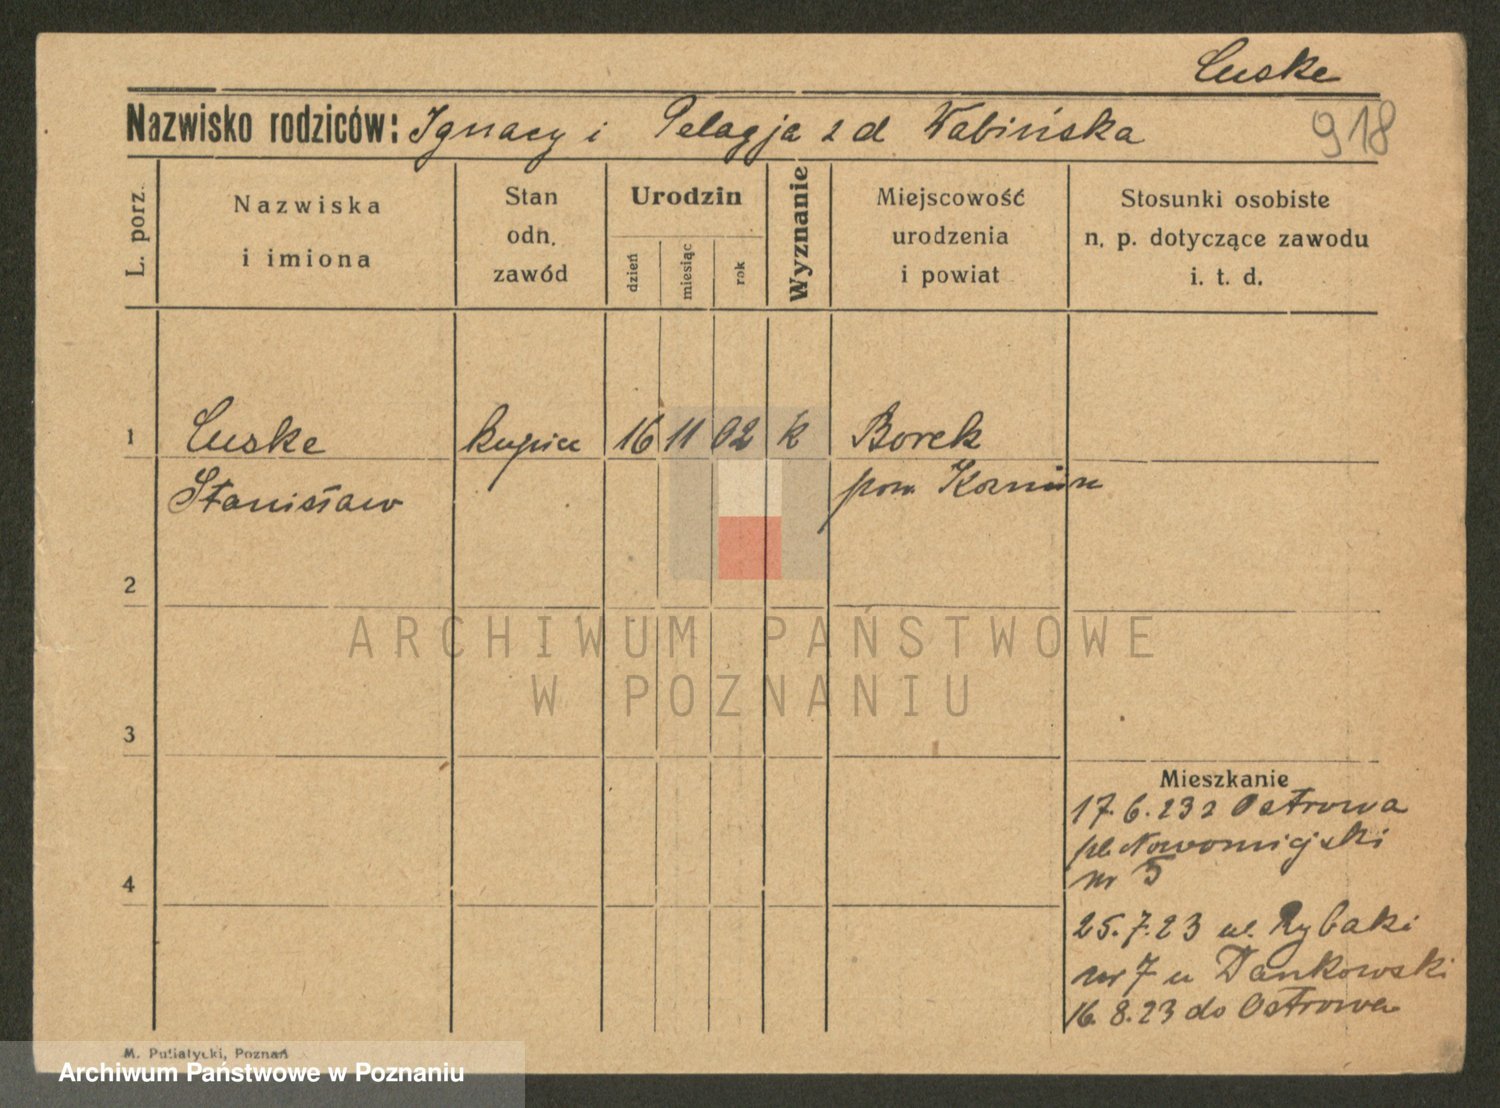 Luske
Nazwisko rodziców: Ignacy i Pelagja z d Wabińska
918
L. porz.
Nazwiska
i imiona
Stan
odn.
zawód
Urodzin
dzień
miesiąc
rok
Wyznanie
Miejscowość
urodzenia
i powiat
Stosunki osobiste
n. p. dotyczące zawodu
i. t. d.
1
Luske
Stanisław
kupiec
16 11 02
k
Borek
pow. Koźmin
2
ARCHIWUM PAŃSTWOWE
W POZNANIU
3
4
Mieszkanie
17.6.23 z Ostrowa
pl. Nowomiejski
nr 5
25.7.23 ul. Rybaki
nr 7 u Dankowski
16.8.23 do Ostrowa
M. Putiatycki, Poznań
Archiwum Państwowe w Poznaniu